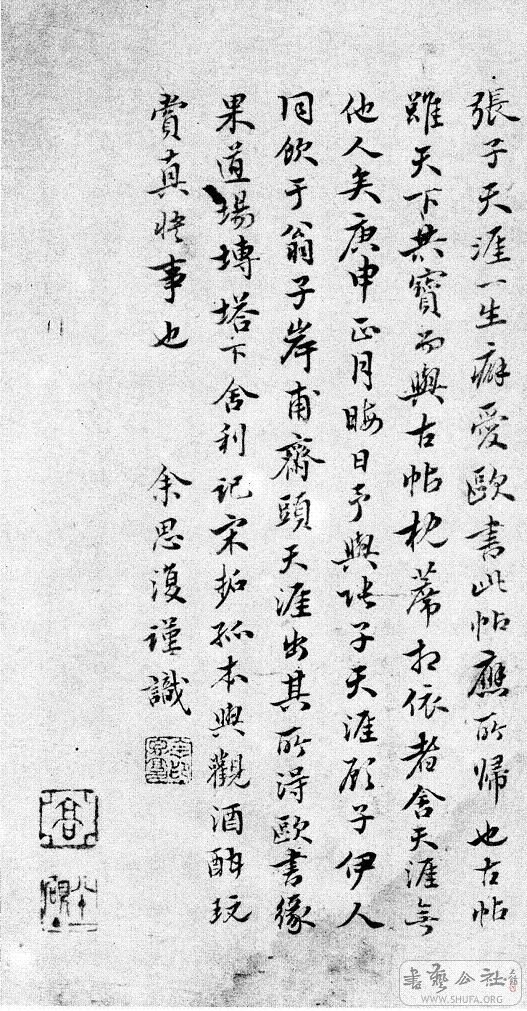 張子天涯一生癖愛歐書此帖應所歸也古帖
雖天下共寶而與古帖枕蓆相依者舍天涯無
他人矣庚申正月晦日予與張子天涯顧子伊人
同飲于翁子岸甫齋頭天涯出其所得歐書緣
果道場塼塔下舍利記宋拓孤本與觀酒酣玩
賞真快事也
余思復謹識
書藝公社
WWW.SHUFA.ORG